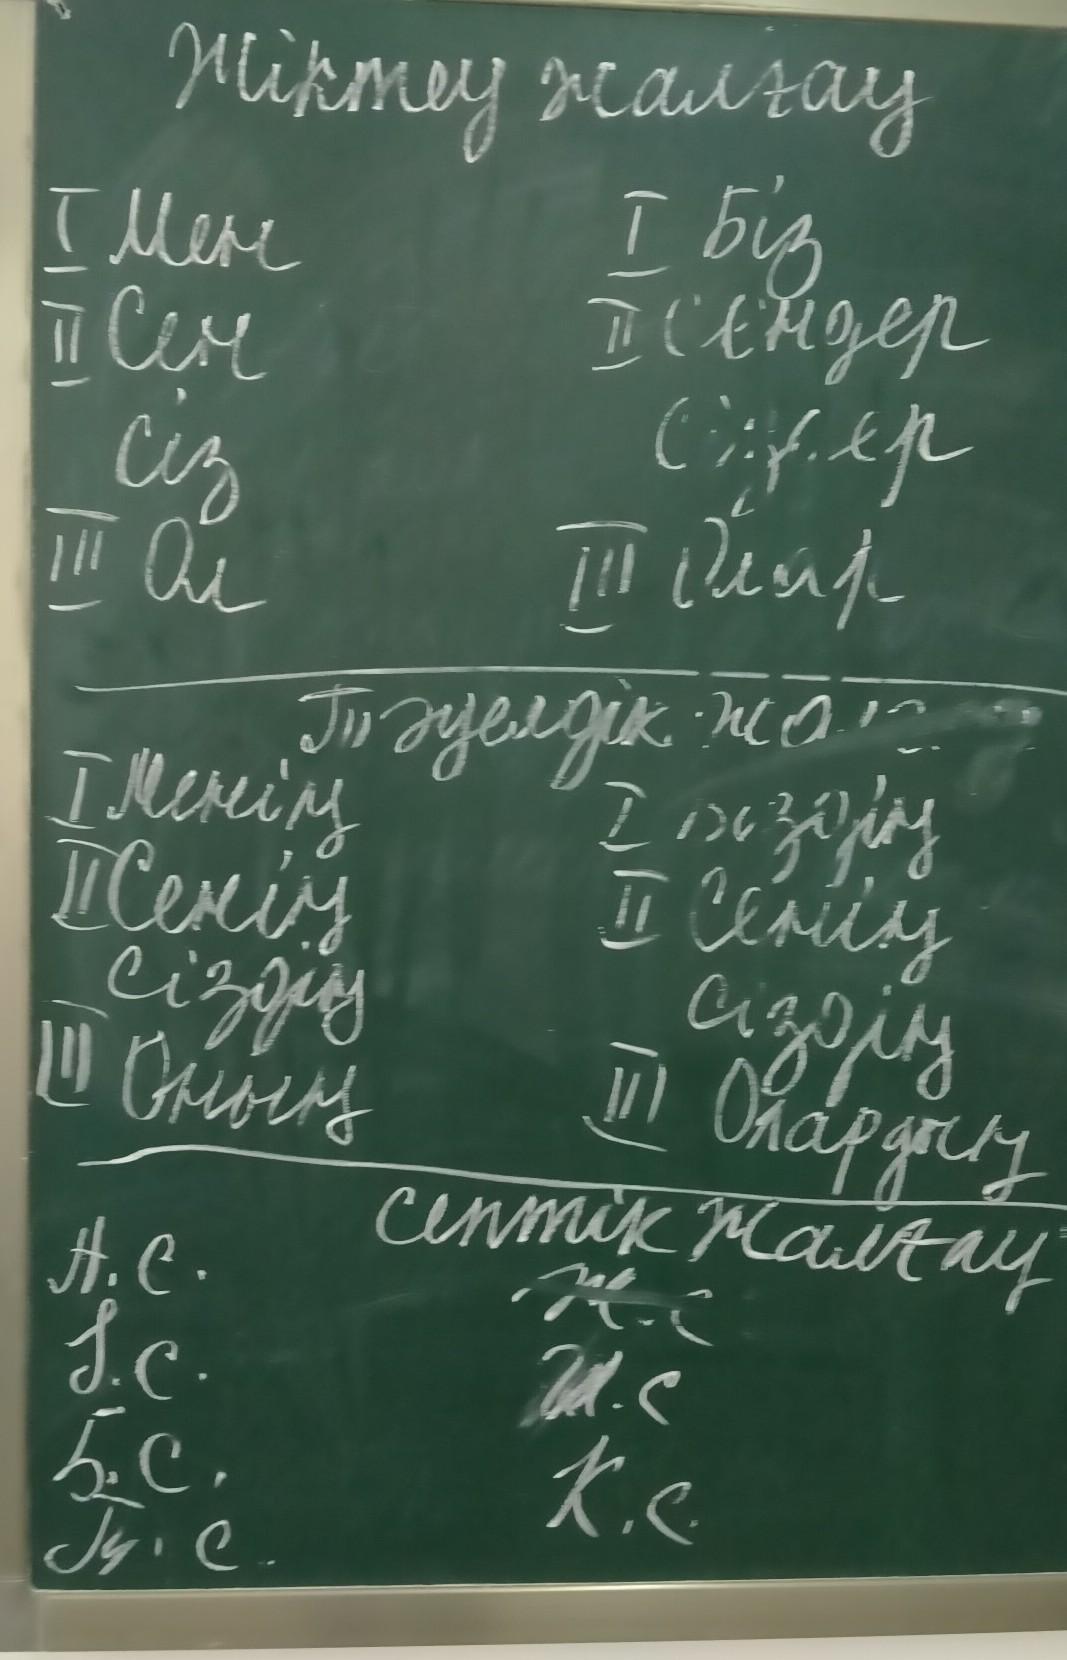 Жіктеу жалғау
I Мен I Біз
II Сен II Сендер
Сіз Сіздер
III Ол III Олар
Тәуелдік жалғау
I Менің I Біздің
II Сенің II Сенің
Сіздің Сіздің
III Оның III Олардың
Септік жалғау
А.С. Ж.С
І.С. Ш.С
Б.С. К.С.
Т.С.